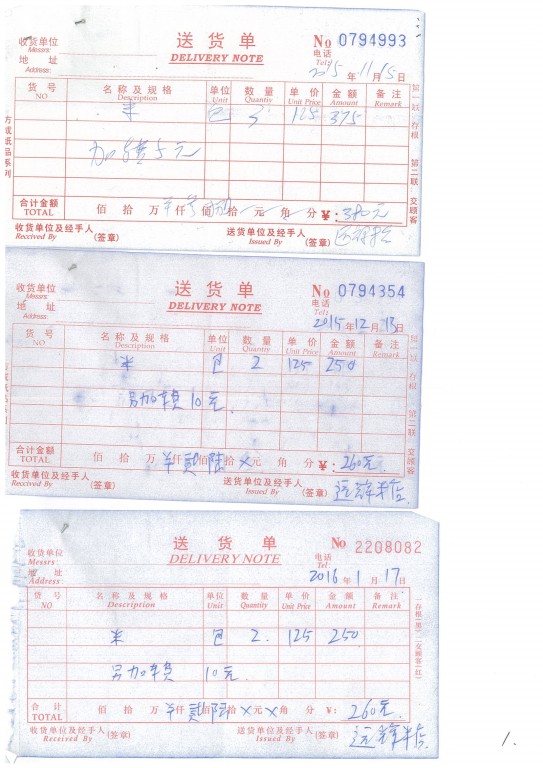 收货单位
Messrs:
送货单
DELIVERY NOTE
No 0794993
地 址
Address:
电话
Tel:
2015 年 11 月 15 日
货 号
NO
名 称 及 规 格
Description
单位
Unit
数 量
Quantity
单 价
Unit Price
金 额
Amount
备 注
Remark
米 包 3 125 375
加 5元
方成纸品系列
第一联:存根 第二联:交顾客
合计金额
TOTAL
佰 拾 万 仟 佰 拾 元 角 分 ¥: 380元
收货单位及经手人
Reccived By
(签章)
送货单位及经手人
Issued By
(签章)
收货单位
Messrs:
送货单
DELIVERY NOTE
No 0794354
地 址
Address:
电话
Tel:
2015 年 12 月 13 日
货 号
NO
名 称 及 规 格
Description
单位
Unit
数 量
Quantity
单 价
Unit Price
金 额
Amount
备 注
Remark
米 包 2 125 250
另加车费10元.
第一联:存根 第二联:交顾客
合计金额
TOTAL
佰 拾 万 仟 贰 佰 陆 拾 × 元 角 分 ¥: 260元.
收货单位及经手人
Reccived By
(签章)
送货单位及经手人
Issued By
(签章)
远辉米店
收货单位
Messrs:
送货单
DELIVERY NOTE
No 2208082
地 址
Address:
电话
Tel:
2016 年 1 月 17 日
货 号
NO
名 称 及 规 格
Description
单位
Unit
数 量
Quantity
单 价
Unit Price
金 额
Amount
备 注
Remark
米 包 2. 125 250
另加车费 10元.
一存根(黑) 二交顾客(红)
合 计
TOTAL
佰 拾 万 仟 贰 佰 陆 拾 × 元 × 角 分 ¥: 260元.
收货单位及经手人
Received By
(签章)
送货单位及经手人
Issued By
(签章)
远辉米店.
1.